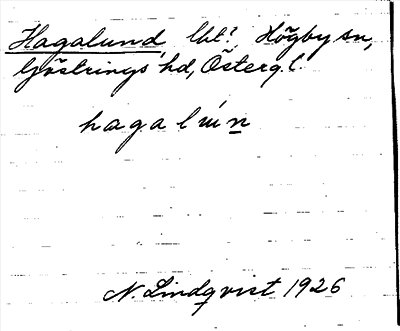 Hagalund, lht? Högby sn,
Göstrings hd, Österg. l.
hagalún
N. Lindqvist 1926